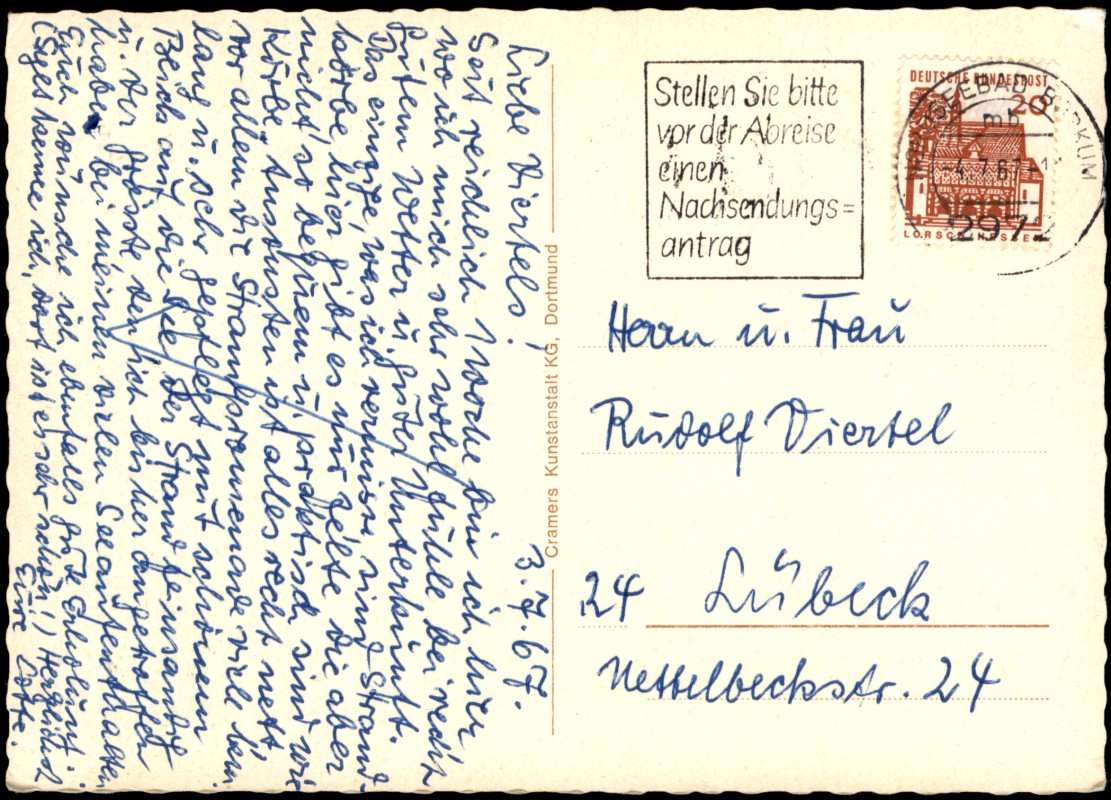 3.7.67.
Liebe Viertels!
Seit reichlich 1 Woche bin ich hier,
wo ich mich sehr wohl fühle bei recht
gutem Wetter u. guter Unterkunft.
Das einzige, was ich vermisse sind Strand-
körbe, hier gibt es nur Zelte die aber
nicht so bequem u. praktisch sind wie
Körbe. Ansonsten ist alles recht nett
vor allem die Strandpromenade viele km
lang u. sehr gepflegt mit schönem
Blick auf die See. Der Strand feinsandig
u. der grösste den ich bisher angetroffen
habe, bei meinen vielen Seeaufenthalten
Euch wünsche ich ebenfalls gute Erholung.
(Sylt kenne ich, dort ist es sehr schön!) Herzlichst
Eure Lotte.
Cramers Kunstanstalt KG, Dortmund
Stellen Sie bitte
vor der Abreise
einen
Nachsendungs=
antrag
DEUTSCHE BUNDESPOST
20
LORSCH/HESSEN
NORDSEEBAD BORKUM
mb
4.7.67
2972
Herrn u. Frau
Rudolf Viertel
24 Lübeck
Nettelbeckstr. 24